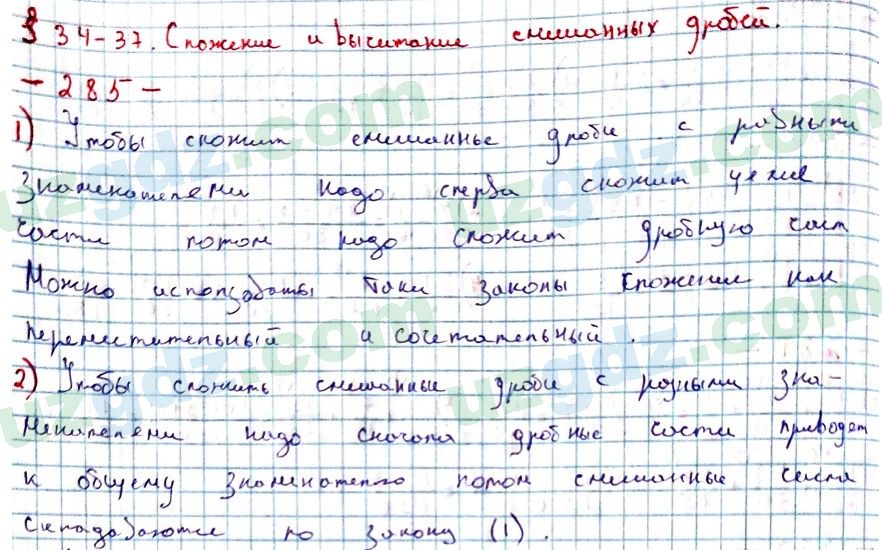 § 34-37. Сложение и вычитание смешанных дробей.
- 285 -
1) Чтобы сложит смешанные дроби с равными
знаменателями надо сперва сложит целые
части потом надо сложит дробную част
Можно использовать таки законы сложения как
переместительный и сочетательный.
2) Чтобы сложить смешанные дроби с разными зна-
менателями надо сначала дробные части приводят
к общему знаменателю потом смешанные числа
складываются по закону (1).
uzgdz.com